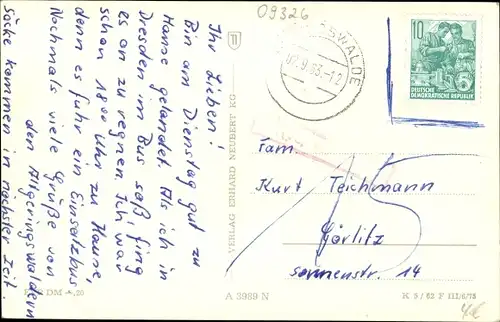 Ihr Lieben!
Bin am Dienstag gut zu
Hause gelandet. Als ich in
Dresden im Bus saß fing
es an zu regnen. Ich war
schon 18 00 Uhr zu Hause,
denn es fuhr ein Einsatzbus.
Nochmals viele Grüße von
den Altgeringswaldern
Säcke kommen in nächster Zeit.
DM -,20
VERLAG ERHARD NEUBERT KG
A 3989 N
K 5/62 F III/6/73
09326
SWALDE
10
DEUTSCHE
DEMOKRATISCHE REPUBLIK
Fam.
Kurt Teichmann
Görlitz
Sonnenstr. 14
15